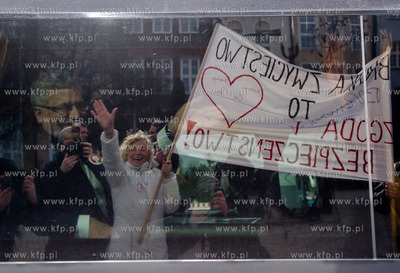 www.kfp.pl www.kfp.pl www.kfp.pl www.kfp.pl
www.kfp.pl www.kfp.pl www.kfp.pl www.kfp.pl
www.kfp.pl www.kfp.pl www.kfp.pl www.kfp.pl
www.kfp.pl www.kfp.pl www.kfp.pl www.kfp.pl
www.kfp.pl www.kfp.pl www.kfp.pl www.kfp.pl
www.kfp.pl www.kfp.pl www.kfp.pl www.kfp.pl
www.kfp.pl www.kfp.pl www.kfp.pl www.kfp.pl
www.kfp.pl www.kfp.pl www.kfp.pl www.kfp.pl
www.kfp.pl www.kfp.pl www.kfp.pl www.kfp.pl
www.kfp.pl www.kfp.pl www.kfp.pl www.kfp.pl
ZWYCIĘSTWO
TO
ZGODA I
BEZPIECZEŃSTWO!